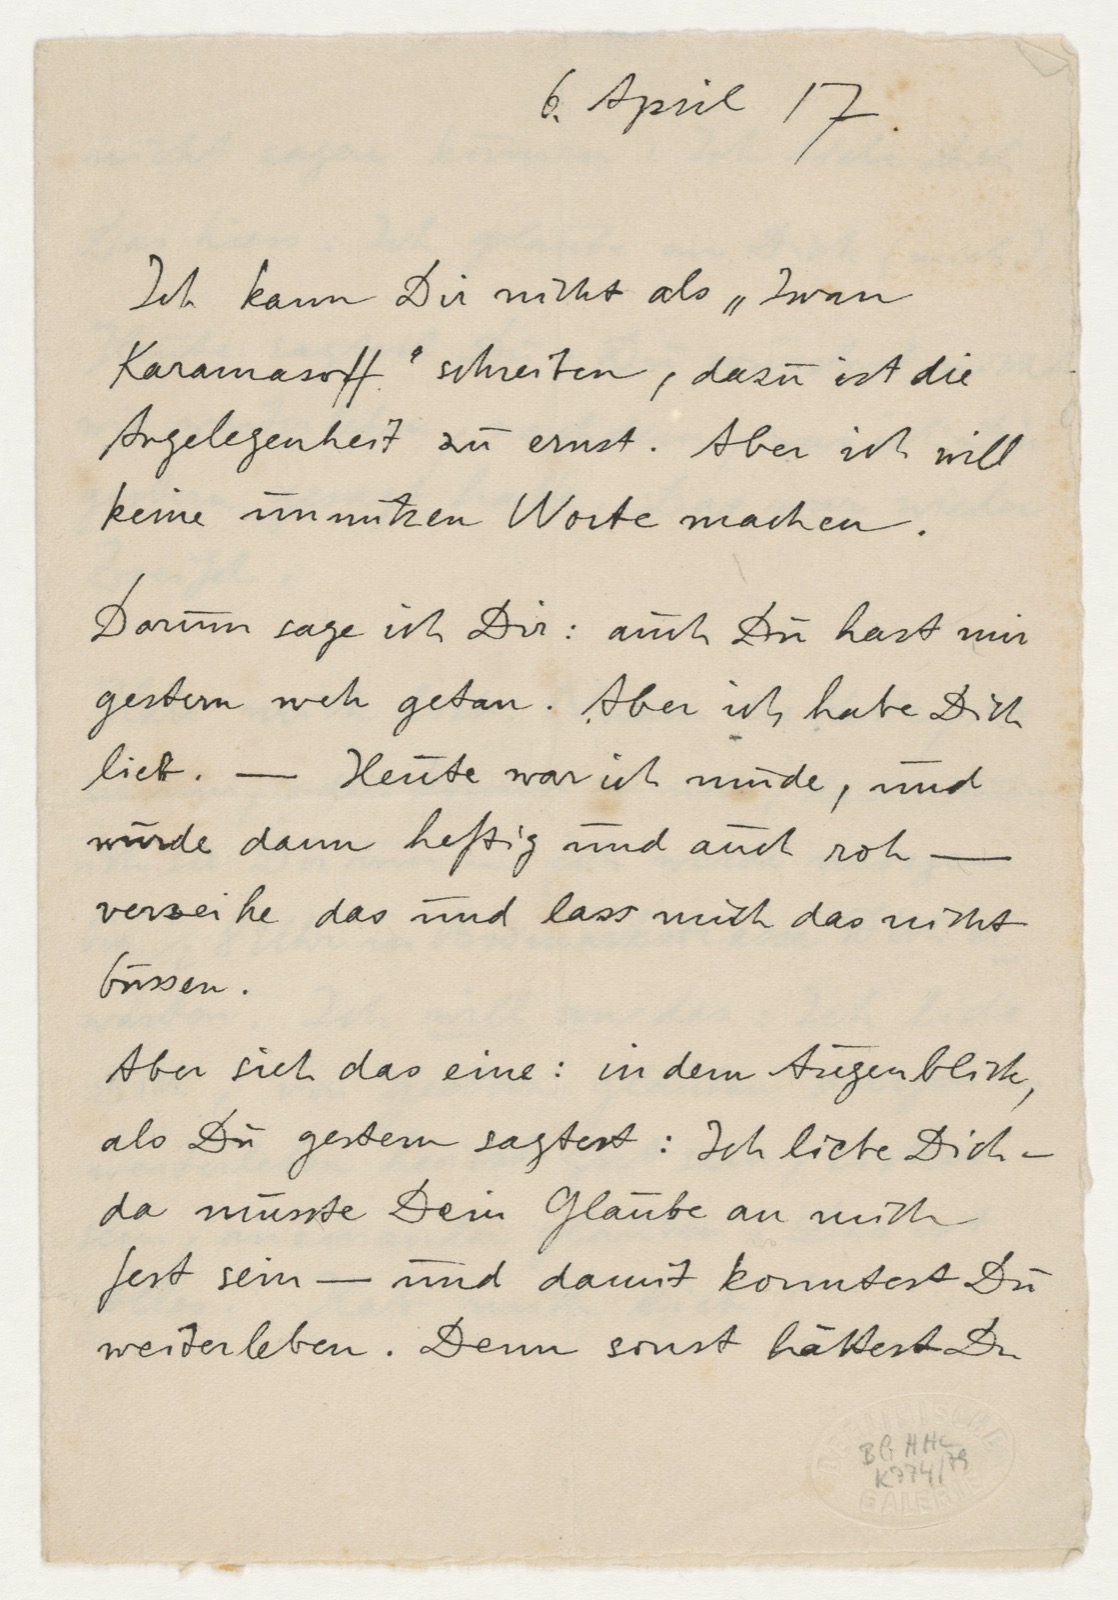 6. April 17.
Ich kann Dir nicht als „Iwan
Karamasoff“ schreiben, dazu ist die
Angelegenheit zu ernst. Aber ich will
keine unnützen Worte machen.
Darum sage ich Dir: auch Du hast mir
gestern weh getan. Aber ich habe Dich
lieb. — Heute war ich müde, und
wurde dann heftig und auch roh —
verzeihe das und lass mich das nicht
büssen.
Aber sieh das eine: in dem Augenblick,
als Du gestern sagtest: Ich liebe Dich –
da musste Dein Glaube an mich
fest sein — und damit konntest Du
weiterleben. Denn sonst hättest Du
BERLINISCHE
BG HHC
K774/79
GALERIE